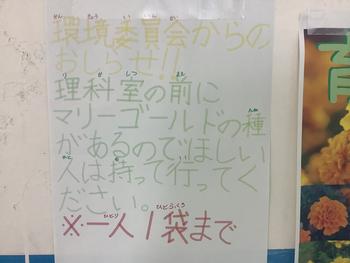 環境委員会からの
おしらせ!!
理科室の前に
マリーゴールドの種
があるのでほしい
人は持って行ってく
ださい。
※一人1袋まで
育